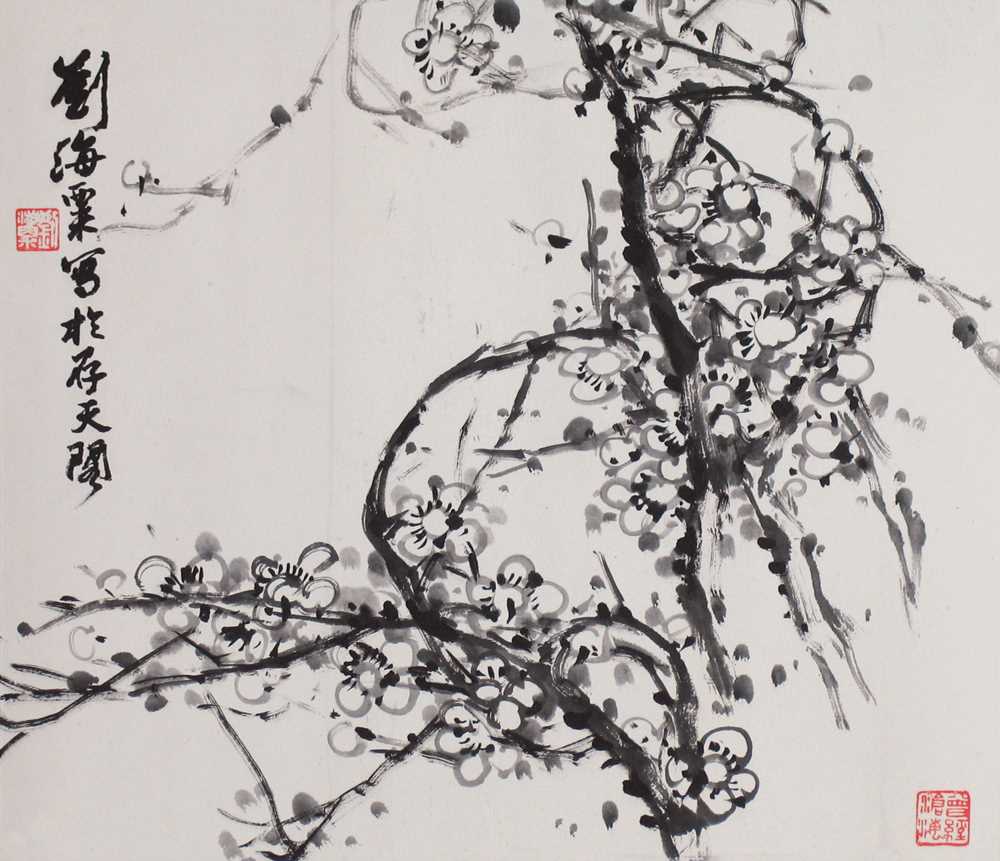 劉海粟寫於存天閣
劉海粟
曾經滄海